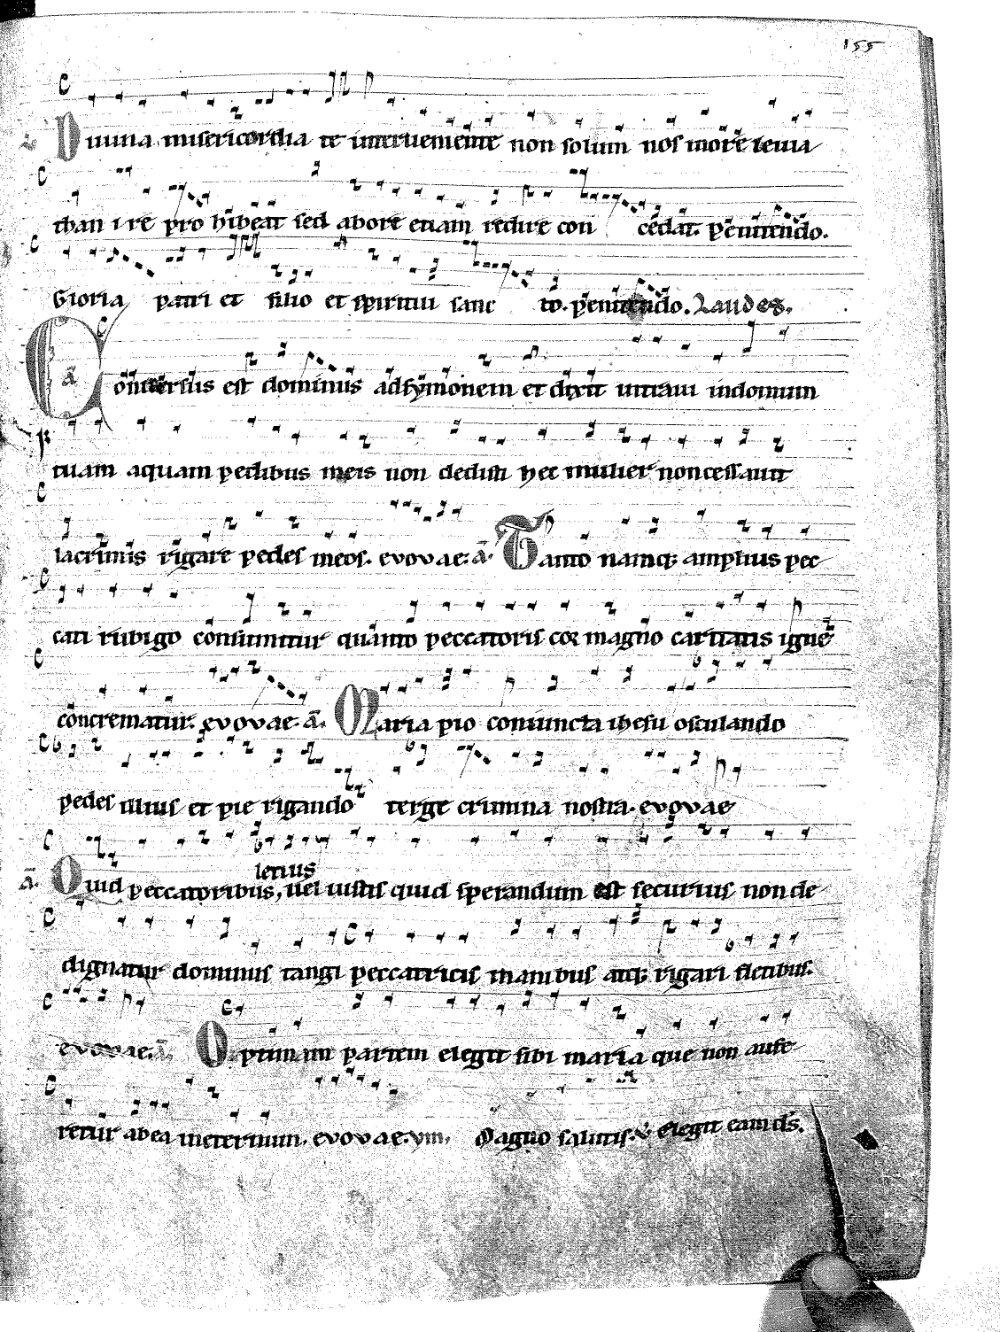 155
Diuina misericordia te interueniente non solum nos more leuia
than i re pro hibeat sed abore etiam redire con cedat. penitendo.
Gloria patri et filio et spiritui sanc to. penitendo. Laudes.
ā Conuersus est dominus ad symonem et dixit intraui indomum
tuam aquam pedibus meis non dedisti hec mulier non cessauit
lacrimis rigare pedes meos. evovae. ā. Tanto namq; amplius pec
cati rubigo consumitur quanto peccatoris cor magno caritatis igne
concrematur. evovae. ā. Maria pio coniuncta ihesu osculando
pedes illius et pie rigando terge crimina nostra. evovae
letius
ā. Quid peccatoribus, uel iustis quid sperandum est securius non de
dignatur dominus tangi peccatricis manibus atq; rigari fletibus.
evovae. ā. Optimam partem elegit sibi maria que non aufe
retur abea ineternum. evovae. viii. Magno salutis. ℣ elegit eam ds.